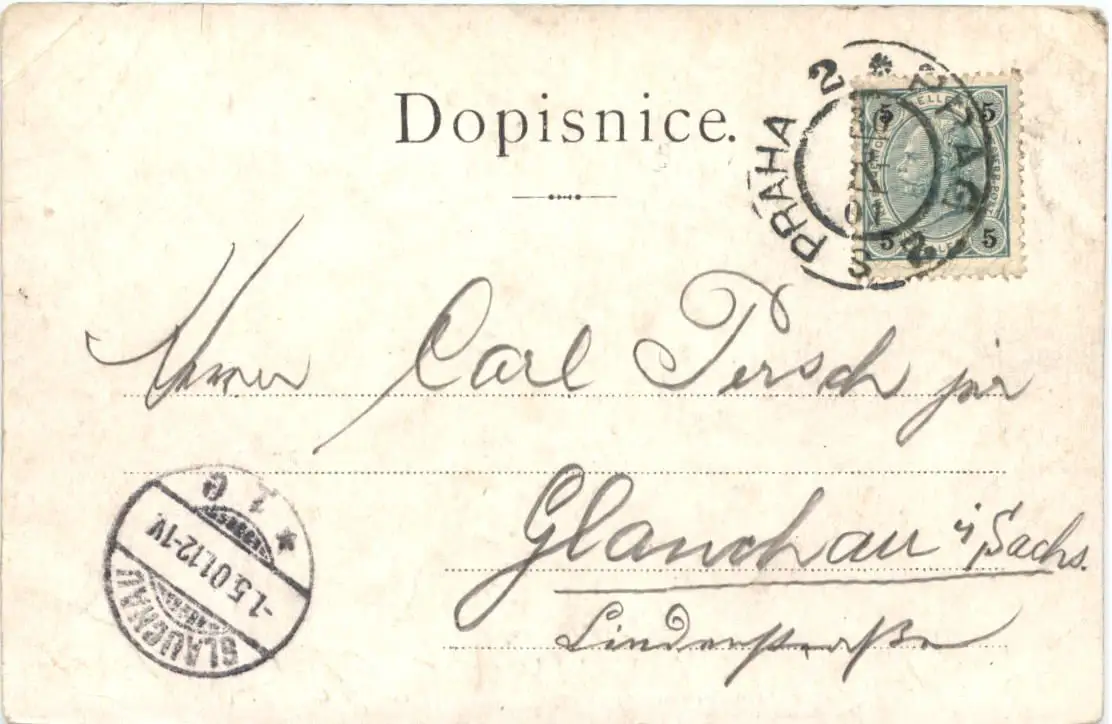 Dopisnice.
PRAHA 2 * PRAG 2
5 HELLER 5
5 HELLER 5
Herrn Carl Persch jur
Glauchau i/Sachs.
Lindenstraße
GLAUCHAU
-1.5.01.12-1V.
* 1 e